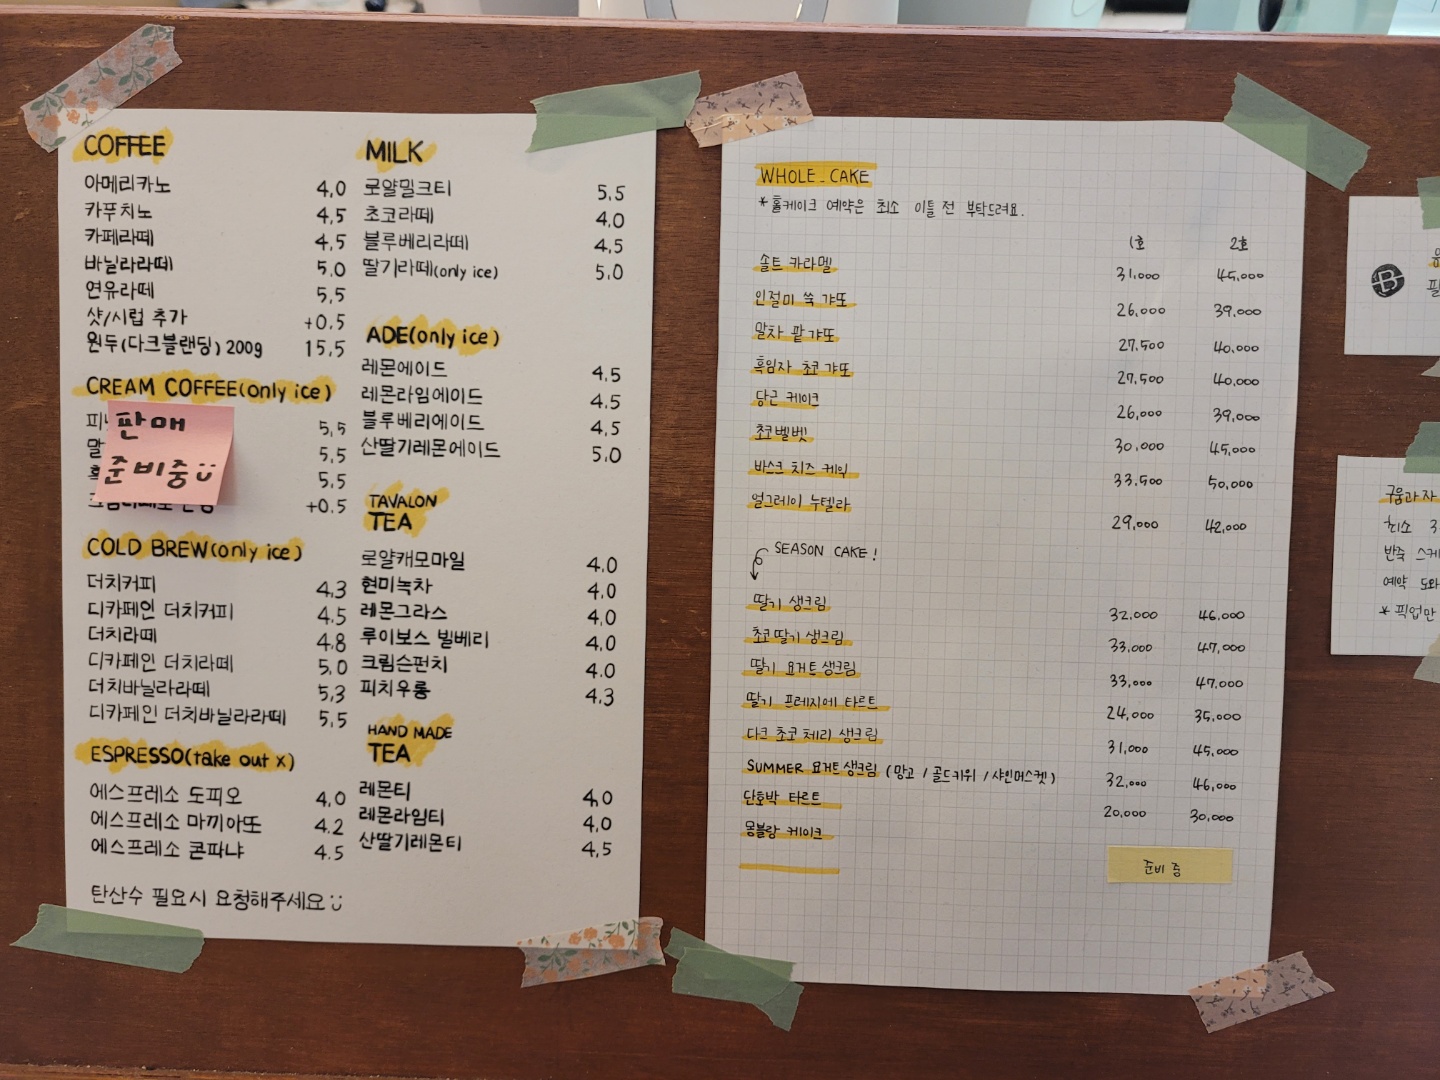 COFFEE
아메리카노 4,0
카푸치노 4,5
카페라떼 4,5
바닐라라떼 5,0
연유라떼 5,5
샷/시럽 추가 +0,5
원두(다크블랜딩) 200g 15,5
CREAM COFFEE(only ice)
5,5
5,5
5,5
+0,5
판매
준비중
COLD BREW(only ice)
더치커피 4,3
디카페인 더치커피 4,5
더치라떼 4,8
디카페인 더치라떼 5,0
더치바닐라라떼 5,3
디카페인 더치바닐라라떼 5,5
ESPRESSO(take out x)
에스프레소 도피오 4,0
에스프레소 마끼아또 4.2
에스프레소 콘파냐 4.5
탄산수 필요시 요청해주세요
MILK
로얄밀크티 5,5
초코라떼 4,0
블루베리라떼 4,5
딸기라떼(only ice) 5,0
ADE(only ice)
레몬에이드 4,5
레몬라임에이드 4,5
블루베리에이드 4,5
산딸기레몬에이드 5,0
TAVALON
TEA
로얄캐모마일 4.0
현미녹차 4,0
레몬그라스 4,0
루이보스 빌베리 4,0
크림슨펀치 4.0
피치우롱 4.3
HAND MADE
TEA
레몬티 4,0
레몬라임티 4,0
산딸기레몬티 4,5
WHOLE_CAKE
* 홀케이크 예약은 최소 이틀 전 부탁드려요.
1호 2호
솔트 카라멜 31,000 45,000
인절미 쑥 갸또 26,000 39,000
말차 팥 갸또 27,500 40,000
흑임자 초코 갸또 27,500 40,000
당근 케이크 26,000 39,000
초코벨벳 30,000 45,000
바스크 치즈 케익 33,500 50,000
얼그레이 누텔라 29,000 42,000
SEASON CAKE!
딸기 생크림 32,000 46,000
초코딸기 생크림 33,000 47,000
딸기 요거트 생크림 33,000 47,000
딸기 프레지에 타르트 24,000 35,000
다크 초코 체리 생크림 31,000 45,000
SUMMER 요거트 생크림 (망고 / 골드키위 / 샤인머스켓) 32,000 46,000
단호박 타르트 20,000 30,000
몽블랑 케이크
준비 중
B
구움과자
최소 3
반죽 스케
예약 도와
* 픽업만